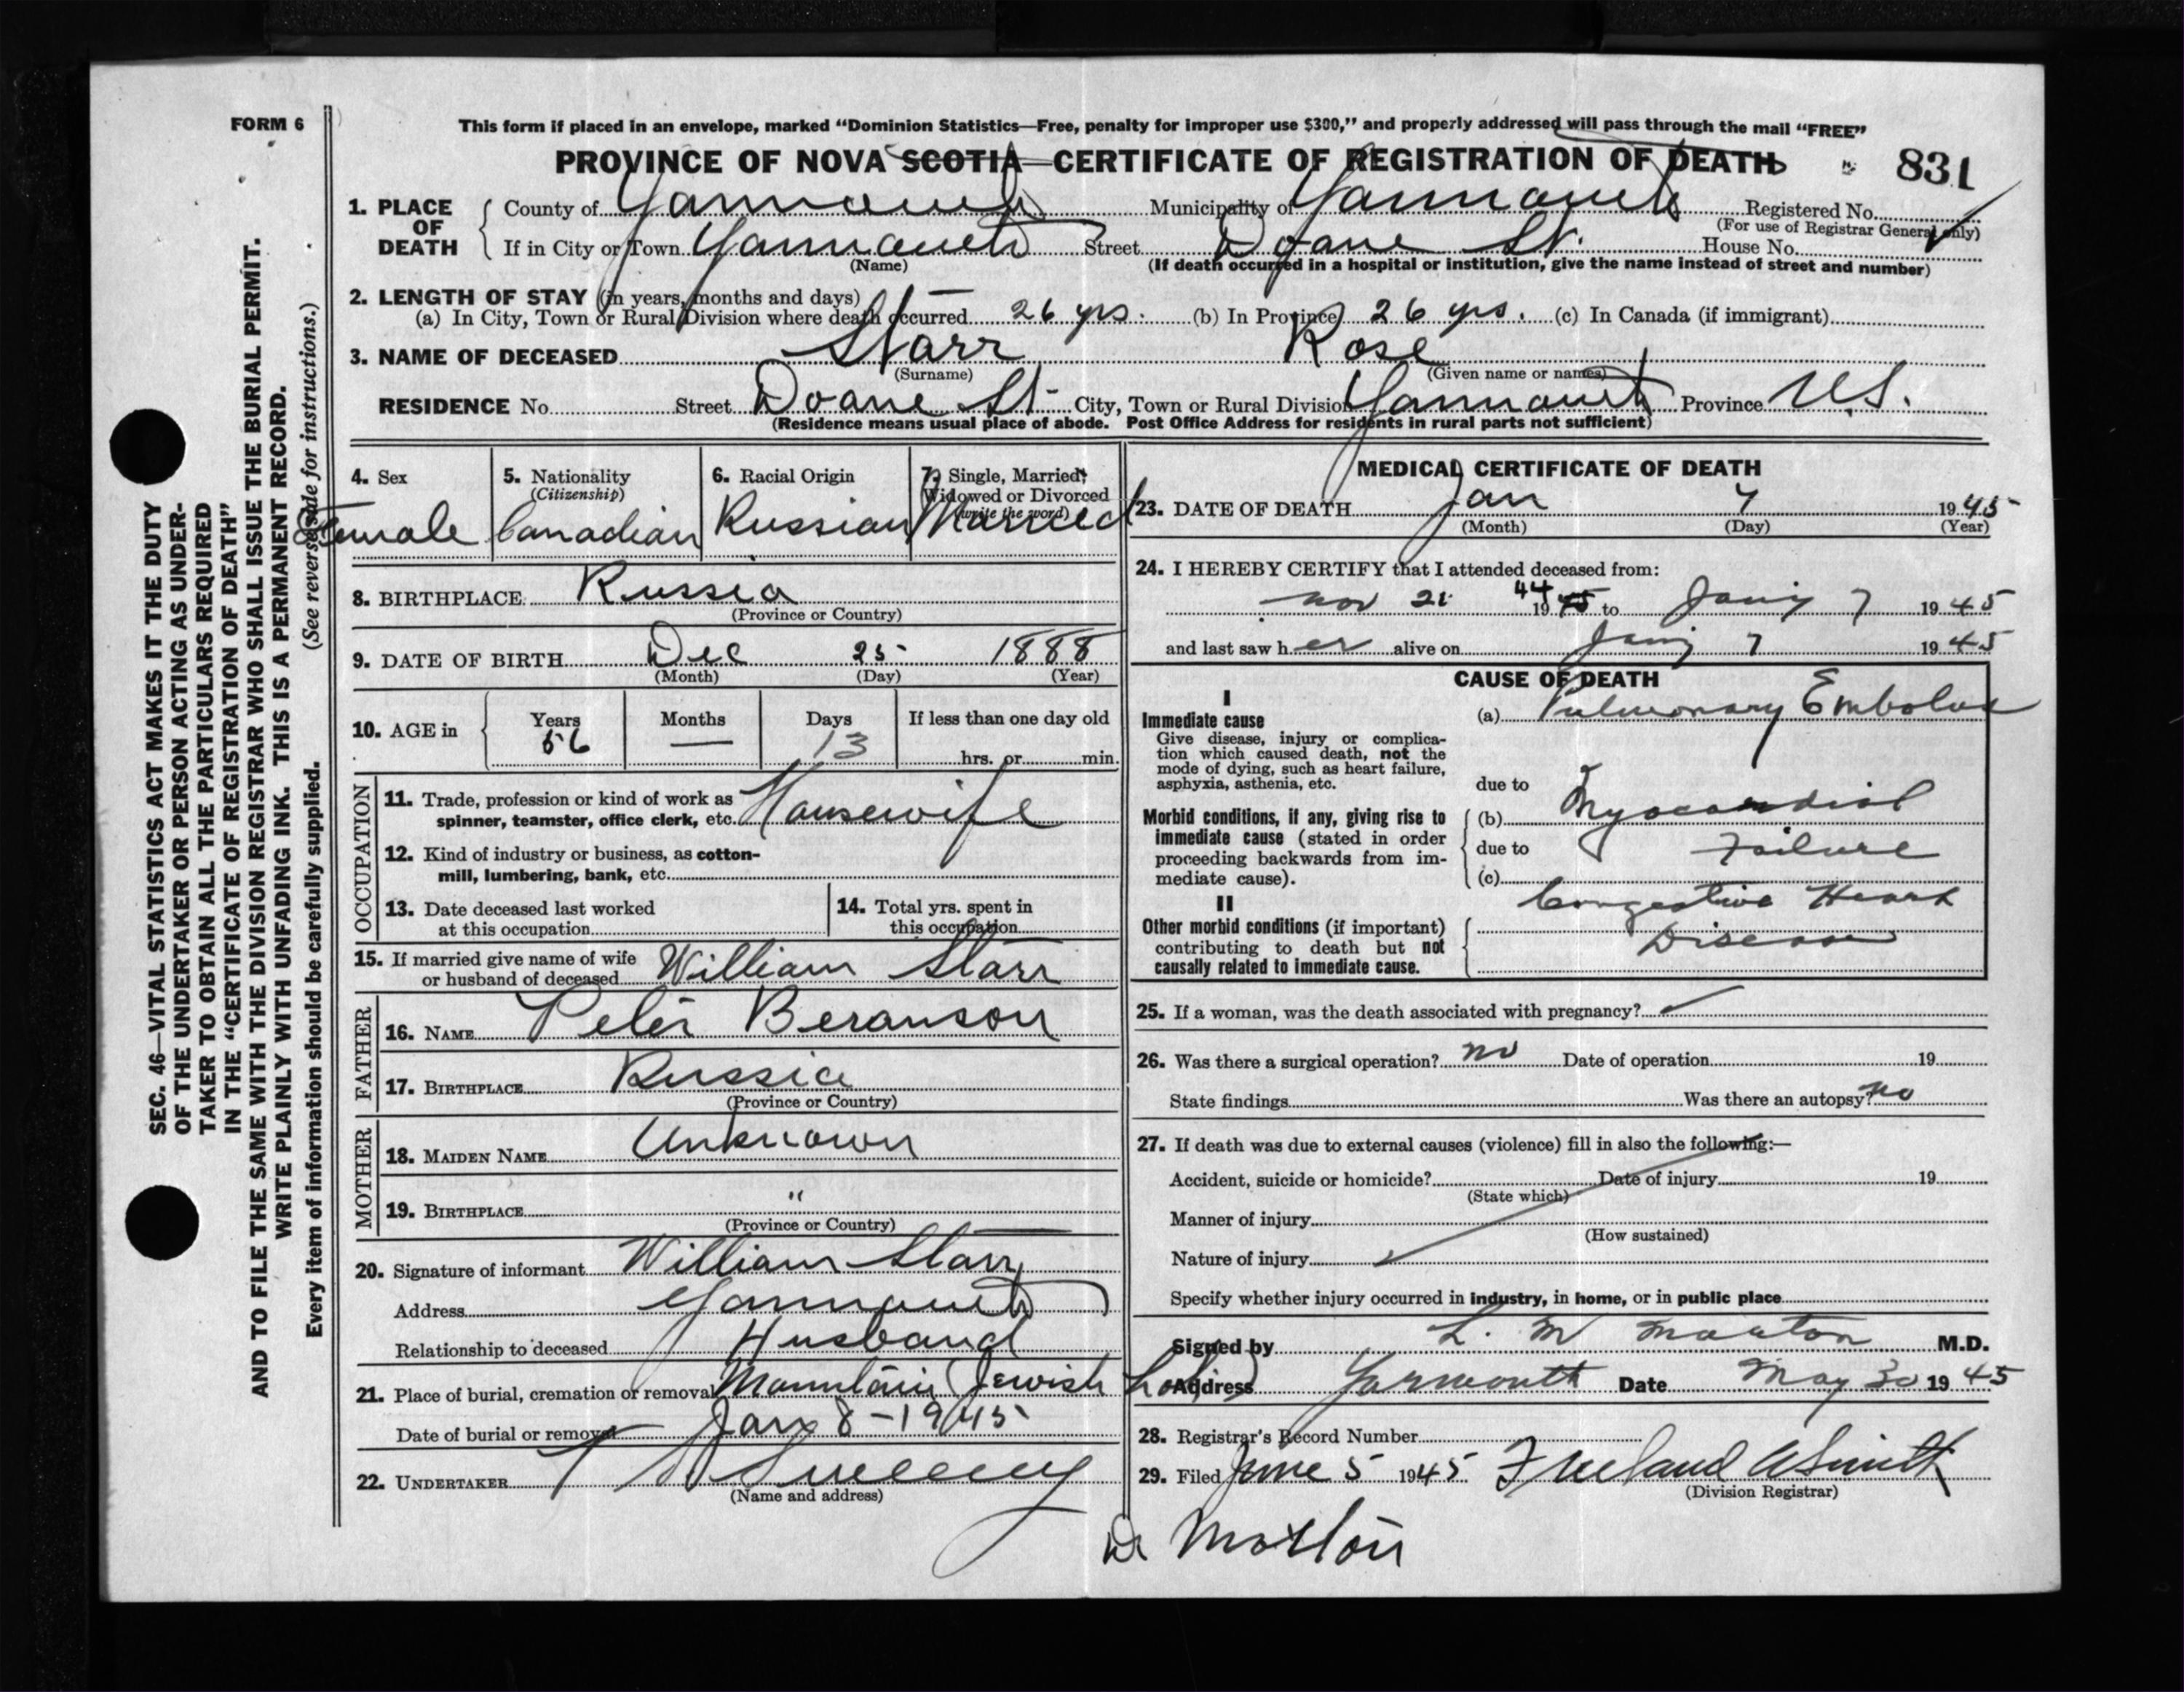 FORM 6
This form if placed in an envelope, marked “Dominion Statistics—Free, penalty for improper use $300,” and properly addressed will pass through the mail “FREE”
PROVINCE OF NOVA SCOTIA—CERTIFICATE OF REGISTRATION OF DEATH 831
1. PLACE OF DEATH County of Yarmouth Municipality of Yarmouth Registered No.
(For use of Registrar General only)
If in City or Town Yarmouth Street Doane St. House No.
(Name) (If death occurred in a hospital or institution, give the name instead of street and number)
2. LENGTH OF STAY (in years, months and days)
(a) In City, Town or Rural Division where death occurred 26 yrs. (b) In Province 26 yrs. (c) In Canada (if immigrant)
3. NAME OF DECEASED Starr Rose
(Surname) (Given name or names)
RESIDENCE No. Street Doane St. City, Town or Rural Division Yarmouth Province N.S.
(Residence means usual place of abode. Post Office Address for residents in rural parts not sufficient)
4. Sex Female
5. Nationality (Citizenship) Canadian
6. Racial Origin Russian
7. Single, Married, Widowed or Divorced (write the word) Married
8. BIRTHPLACE Russia
(Province or Country)
9. DATE OF BIRTH Dec 25 1888
(Month) (Day) (Year)
10. AGE in Years Months Days If less than one day old
56 — 13 hrs. or min.
OCCUPATION
11. Trade, profession or kind of work as
spinner, teamster, office clerk, etc. Housewife
12. Kind of industry or business, as cotton-
mill, lumbering, bank, etc.
13. Date deceased last worked
at this occupation
14. Total yrs. spent in
this occupation
15. If married give name of wife
or husband of deceased William Starr
FATHER
16. NAME Peter Beranson
17. BIRTHPLACE Russia
(Province or Country)
MOTHER
18. MAIDEN NAME Unknown
19. BIRTHPLACE "
(Province or Country)
20. Signature of informant William Starr
Address Yarmouth
Relationship to deceased Husband
21. Place of burial, cremation or removal Mountain (Jewish Lot)
Date of burial or removal Jan 8-1945
22. UNDERTAKER Sweeny
(Name and address)
MEDICAL CERTIFICATE OF DEATH
23. DATE OF DEATH Jan 7 1945
(Month) (Day) (Year)
24. I HEREBY CERTIFY that I attended deceased from:
Nov 21 44 1945 to Jany 7 1945
and last saw her alive on Jany 7 1945
CAUSE OF DEATH
I
Immediate cause (a) Pulmonary Embolus
Give disease, injury or complica-
tion which caused death, not the
mode of dying, such as heart failure,
asphyxia, asthenia, etc. due to
Morbid conditions, if any, giving rise to (b) Myocardial
immediate cause (stated in order
proceeding backwards from im- due to Failure
mediate cause). (c)
II Congestive Heart
Other morbid conditions (if important)
contributing to death but not Disease
causally related to immediate cause.
25. If a woman, was the death associated with pregnancy?
26. Was there a surgical operation? no Date of operation 19
State findings Was there an autopsy? no
27. If death was due to external causes (violence) fill in also the following:—
Accident, suicide or homicide? Date of injury 19
(State which)
Manner of injury
(How sustained)
Nature of injury
Specify whether injury occurred in industry, in home, or in public place
Signed by L. M Morton M.D.
Address Yarmouth Date May 30 1945
28. Registrar's Record Number
29. Filed June 5 1945 Freeland A Smith
(Division Registrar)
Dr Morton
SEC. 46—VITAL STATISTICS ACT MAKES IT THE DUTY
OF THE UNDERTAKER OR PERSON ACTING AS UNDER-
TAKER TO OBTAIN ALL THE PARTICULARS REQUIRED
IN THE “CERTIFICATE OF REGISTRATION OF DEATH”
AND TO FILE THE SAME WITH THE DIVISION REGISTRAR WHO SHALL ISSUE THE BURIAL PERMIT.
WRITE PLAINLY WITH UNFADING INK. THIS IS A PERMANENT RECORD.
Every item of information should be carefully supplied. (See reverse side for instructions.)